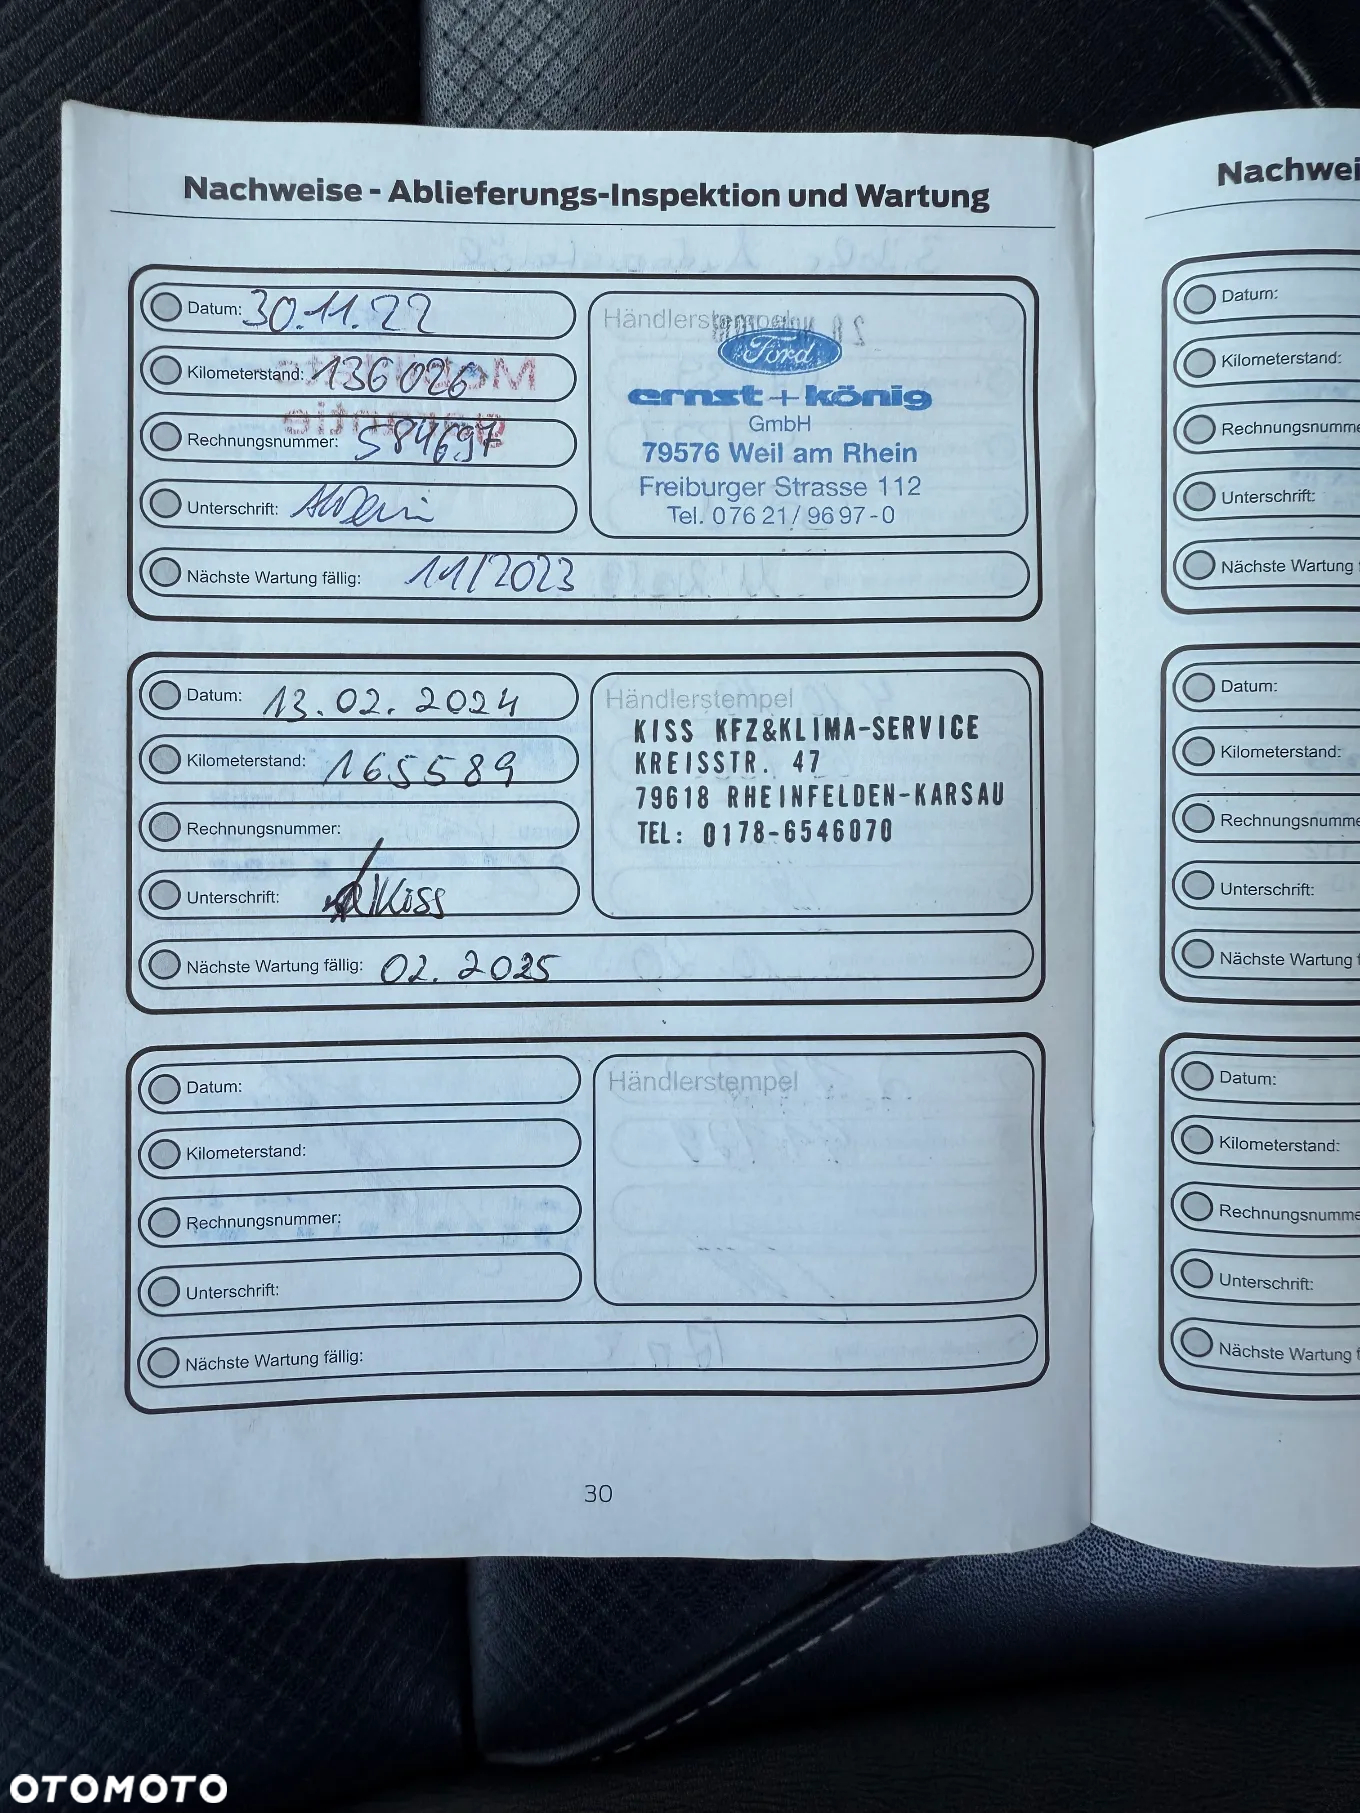 Nachweise - Ablieferungs-Inspektion und Wartung
Datum: 30.11.22
Kilometerstand: 136026
Rechnungsnummer: 584697
Unterschrift:
Nächste Wartung fällig: 11/2023
Händlerstempel
Ford
ernst+könig
GmbH
79576 Weil am Rhein
Freiburger Strasse 112
Tel. 0 76 21 / 96 97-0
Datum: 13.02.2024
Kilometerstand: 165589
Rechnungsnummer:
Unterschrift: Kiss
Nächste Wartung fällig: 02.2025
Händlerstempel
KISS KFZ&KLIMA-SERVICE
KREISSTR. 47
79618 RHEINFELDEN-KARSAU
TEL: 0178-6546070
Datum:
Kilometerstand:
Rechnungsnummer:
Unterschrift:
Nächste Wartung fällig:
Händlerstempel
30
Nachwei
Datum:
Kilometerstand:
Rechnungsnumme
Unterschrift:
Nächste Wartung
Datum:
Kilometerstand:
Rechnungsnumme
Unterschrift:
Nächste Wartung f
Datum:
Kilometerstand:
Rechnungsnumme
Unterschrift:
Nächste Wartung f
OTOMOTO